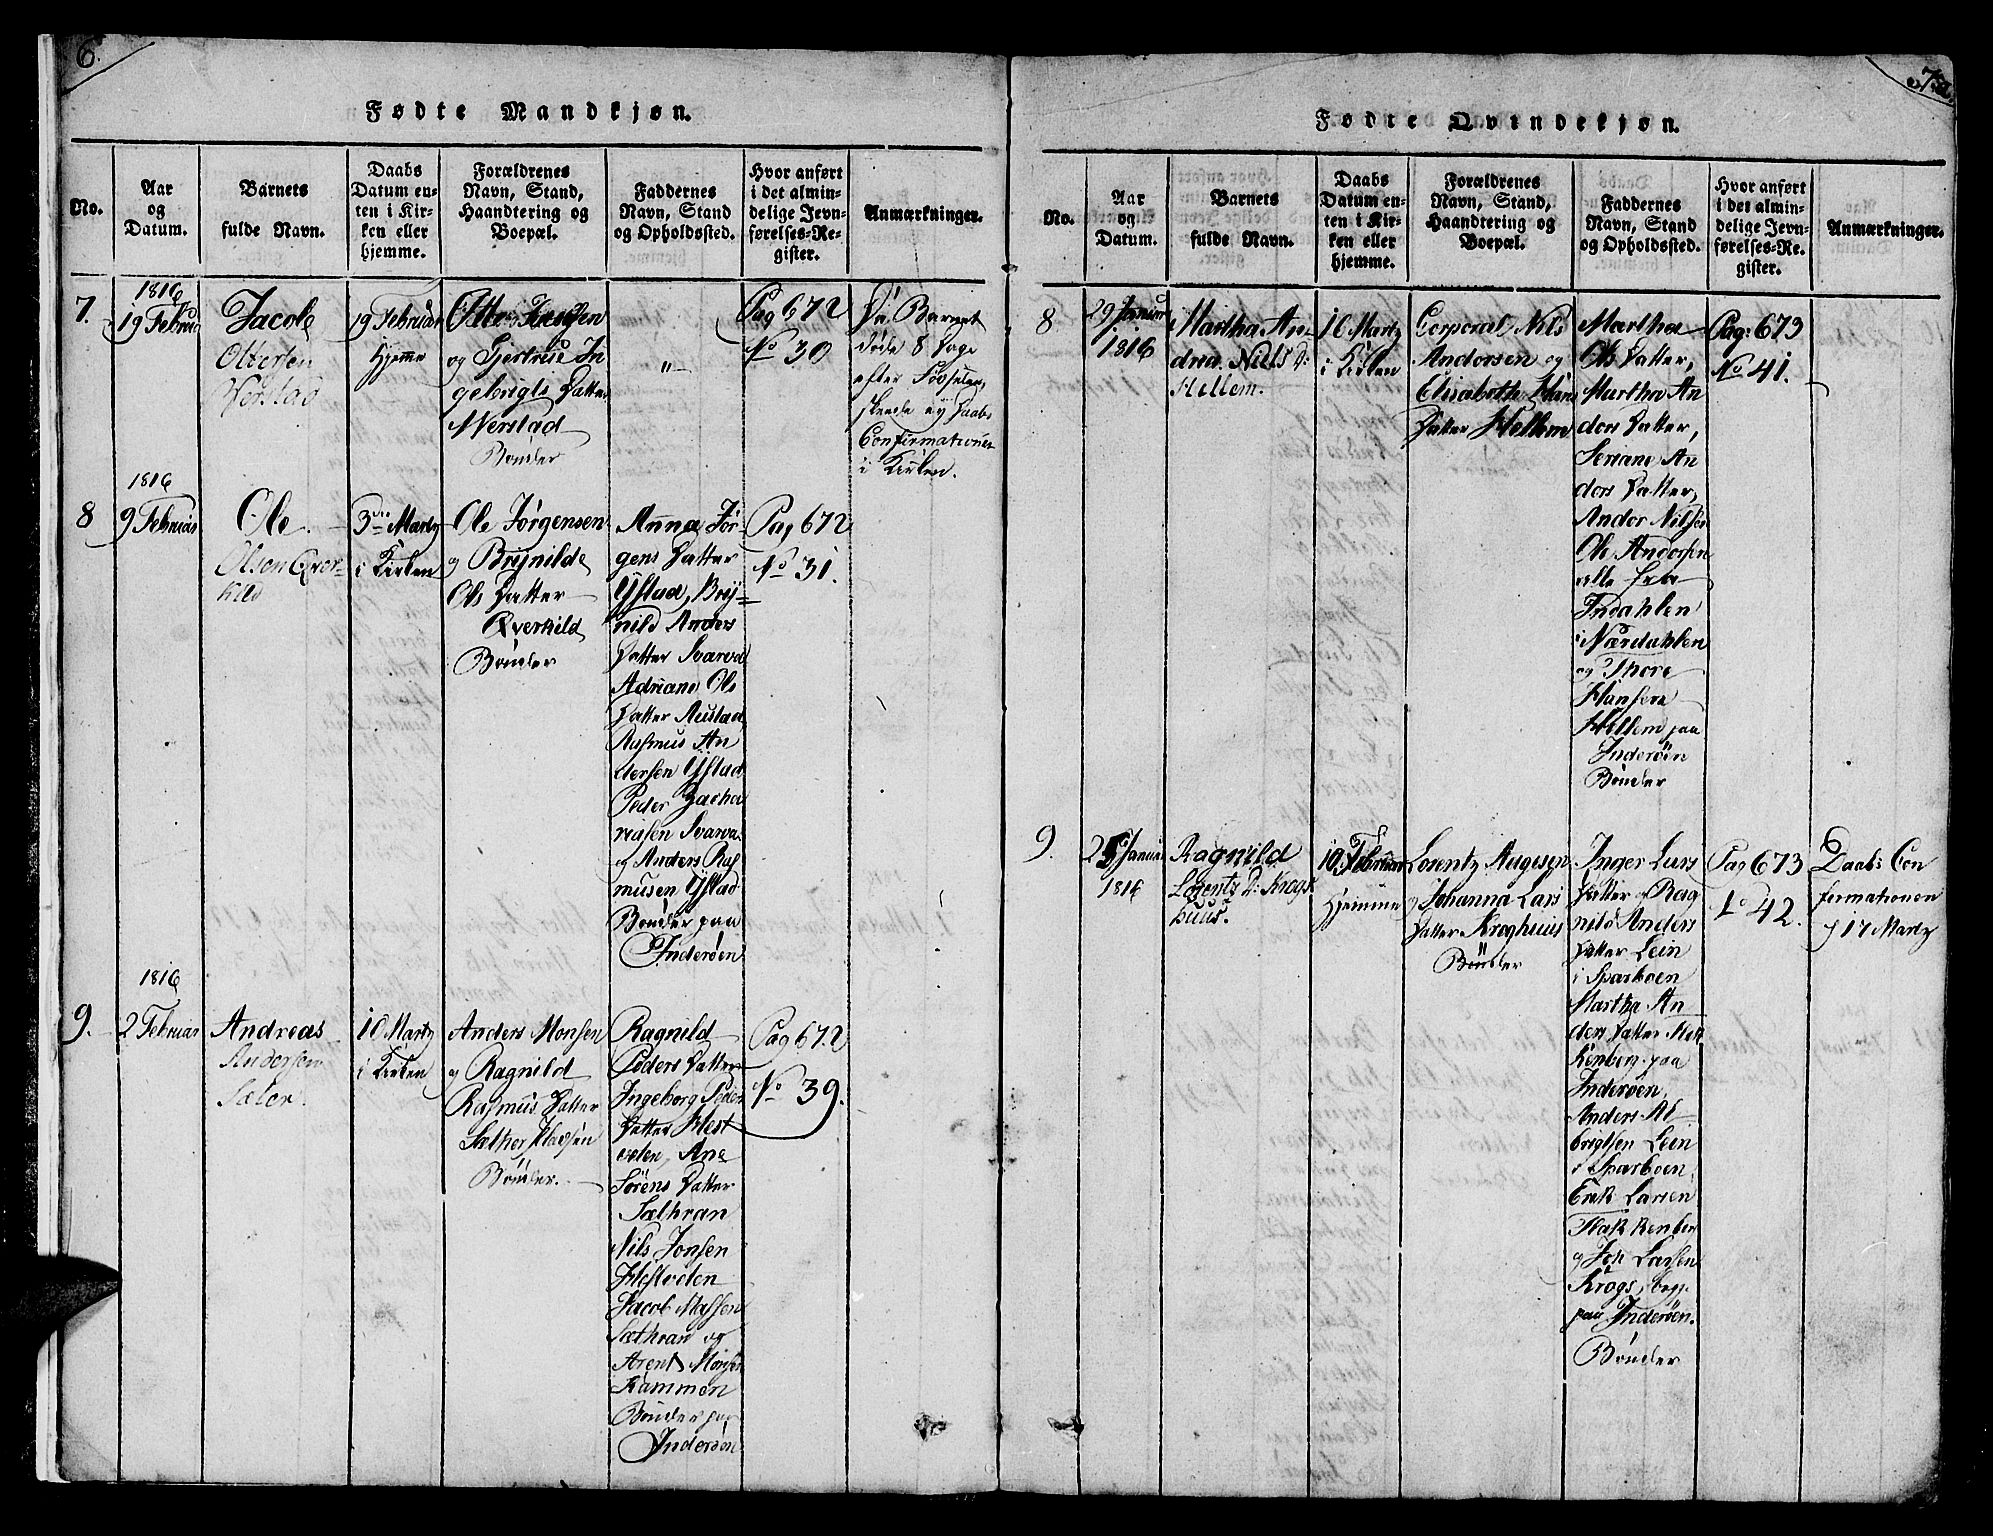 6.
Fødte Mandkjøn.
No.
Aar
og
Datum.
Barnets
fulde Navn.
Daabs
Datum en-
ten i Kir-
ken eller
hjemme.
Forældrenes
Navn, Stand,
Haandtering og
Boepæl.
Faddernes
Navn, Stand
og Opholdssted.
Hvor anført
i det almin-
delige Jevn-
førelses-Re-
gister.
Anmærkninger.
7.
1816
19 Februar
Jacob
Ottersen
Værstad
19 Februar
Hjeme
og Gjertrue In
gebrigts Datter
Werstad
Bønder
"
Pag 672
No 30
Da Barnet
døde 8 Dage
efter Fødselen,
skeede ej Daabs
Confirmationen
i Kirken.
8
1816
9 Februar
Ole
Olsen Qver-
kild
3die Martz
i Kirken
Ole Jørgensen
og Brynilde
Ols Datter
Qverkild
Bønder
Anna Jør-
gens Datter
Ystad, Bry-
nild Anders
Datter Svarva
Adriane Ols
Datter Austad
Rasmus An
dersen Ystad
Peder Zacha
riasen Svarva
og Anders Ras
musen Ystad
Bønder paa
Inderøen
Pag 672
No 31.
9.
1816
2 Februar
Andreas
Andersen
Sæter.
10 Martz
i Kirken
Anders Monsen
og Ragnild
Rasmus Datter
Bønder.
Ragnild
Peders Datter
Ingeborg Peder
Datter Hest
veten, Ane
Sørens Datter
Sæthran
Nils Jonsen
Hestveten
Jacob Massen
Sæthran og
Arent Monsen
Kammen
Bønder paa
Inderøen
Pag 672
No 39.
7.
Fødte Qvindekjøn.
No.
Aar
og
Datum.
Barnets
fulde Navn.
Daabs
Datum en-
ten i Kir-
ken eller
hjemme.
Forældrenes
Navn, Stand,
Haandtering og
Boepæl.
Faddernes
Navn, Stand
og Opholdssted.
Hvor anført
i det almin-
delige Jevn-
førelses-Re-
gister.
Anmærkninger.
8
29 Januar
1816
Martha An-
drea Niels D:
Hellem.
10 Martz
i Kirken
Corporal Nils
Andersen og
Elisabeth Hans
Datter Hellem
Martha
Ols Datter,
Martha An
ders Datter,
Seriane An
ders Datter,
Ander Nilsen
Ole Andersen
alle fra
Indahlen
i Værdahlen
og Thore
Hansen
Hellem paa
Inderöen
Bønder
Pag: 673
No 41.
9.
25 Januar
1816
Ragnild
Lorentz D: Krogs
huus.
10 Februar
Hjemme
Lorentz Augesen
og Johanna Lars
Datter Kroghuus
Bønder
Inger Lars
Datter og Rag
nild Anders
Datter Lein
i Sparboen
Martha An
ders Datter Flak
kenberg paa
Inderøen,
Anders Al
brigtsen Lein
i Sparboen
Erik Larsen
Flakkenber
og Jon Larsen
Krogs, begge
paa Inderøen.
Bønder
Pag 673
No 42.
Daabs Con
firmationen
d 17 Martz